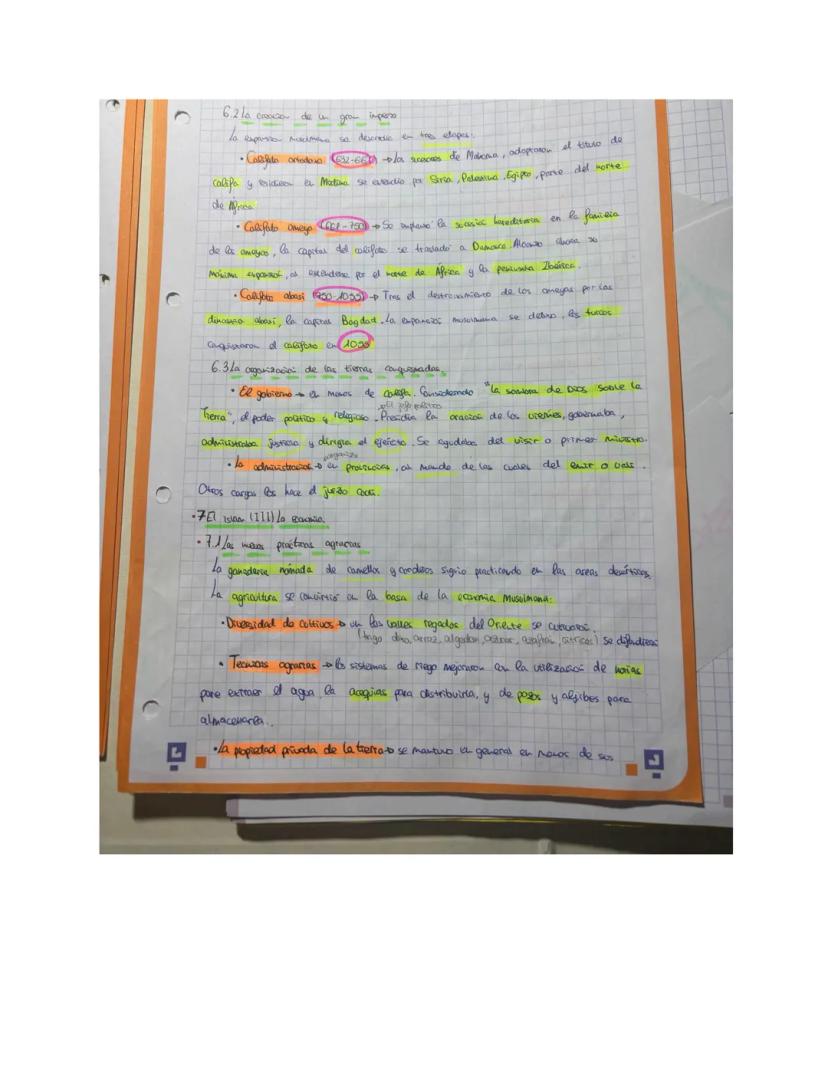 6.2 La creacion de un gran imperio
La expansion musulmana se desarrollo en tres etapas:
• Califato ortodoxo (632-661) → los sucesores de Mahoma, adoptaron el titulo de
califa y residieron en Medina se extendio por Siria, Palestina, Egipto, parte del norte
de África
• Califato omeya (661-750) → Se implanto la sucesion hereditaria en la familia
de los omeyas, la capital del califato se trasladó a Damasco Alcanzo ahora su
máxima expansion, al extenderse por el norte de África y la peninsula Ibérica.
• Califato abasí (750-1055) → Tras el destronamiento de los omeyas por las
dinastia abasí, la capital Bagdad. La expansion musulmana se debno, los turcos
conquistaron el califato en 1055
6.3 La organizacion de las tierras conquistadas
• El gobierno → en manos de califa. Considerado "la sombra de Dios sobre la
Tierra", el poder politico y religioso. Presidia la oracion de los viernes, gobernaba,
administraba justicia y dirigia el ejército. Se ayudaba del visir o primer ministro.
• La administracion → en provincias, al mando de las cuales del emir o vali.
Otros cargos los hace el juez o cadí.
• 7 El islam (III) La economia
• 7.1 Las nuevas practicas agrarias
La ganaderia nómada de camellos y corderos siguio practicando en las areas desérticas.
La agricultura se convirtió en la base de la economia Musulmana:
• Diversidad de cultivos → en los valles regados del Oriente se cultivaron
(trigo arroz, algodon, azucar, azafran, citricos) se difundieron
• Tecnicas agrarias → los sistemas de riego mejoraron con la utilizacion de norias
para extraer el agua, la acequias para distribuirla, y de pozos y aljibes para
almacenarla.
• La propiedad privada de la tierra → se mantuvo en general en manos de sus